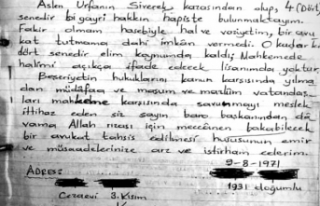 Aslen Urfanın Siverek kazasından olup, 4 (Dört)
senedir bigayri hakkın hapiste bulunmaktayım.
Fakir olmam hasebiyle hal ve vaziyetim, bir avu
kat tutmama dahi imkân vermedi. O kadar ki
dört senedir elim koynumda kaldı; Mahkemede
halimi açıkça ifade edecek lisanımda yoktur.
Beşeriyetin hukuklarını kanun karşısında yılma
dan müdafaa ve masum ve mazlûm vatandaş
ları mahkeme karşısında savunmayı meslek
ittihaz eden siz sayın baro başkanından dâ
vama Allah rızası için meccânen bakabilecek
bir avukat tahsis edilmesi hususunun emir
ve müsaadelerinize arz ve istirham ederim.
9-8-1971
ADRES:
1931 doğumlu
Cezaevi 3. Kısım